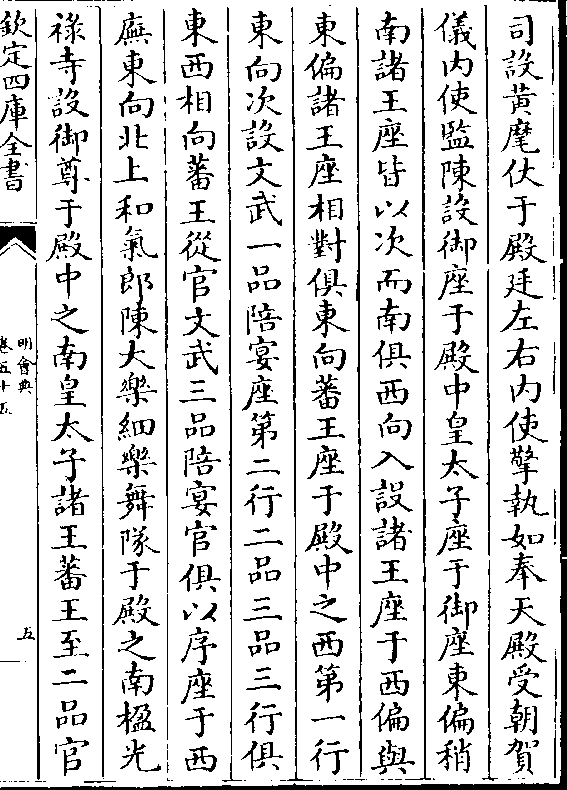 司設黃麾仗于殿廷左右内使擎執如奉天殿受朝賀
儀内使監陳設御座于殿中皇太子座于御座東偏稍
南諸王座皆以次而南俱西向入設諸王座于西偏與
東偏諸王座相對俱東向蕃王座于殿中之西第一行
東向次設文武一品陪宴座第二行二品三品三行俱
東西相向蕃王從官文武三品陪宴官俱以序座于西
廡東向北上和氣郎陳大樂細樂舞隊于殿之南楹光
祿寺設御尊于殿中之南皇太子諸王蕃王至二品官
欽定四庫全書
明會典
卷五十五
五